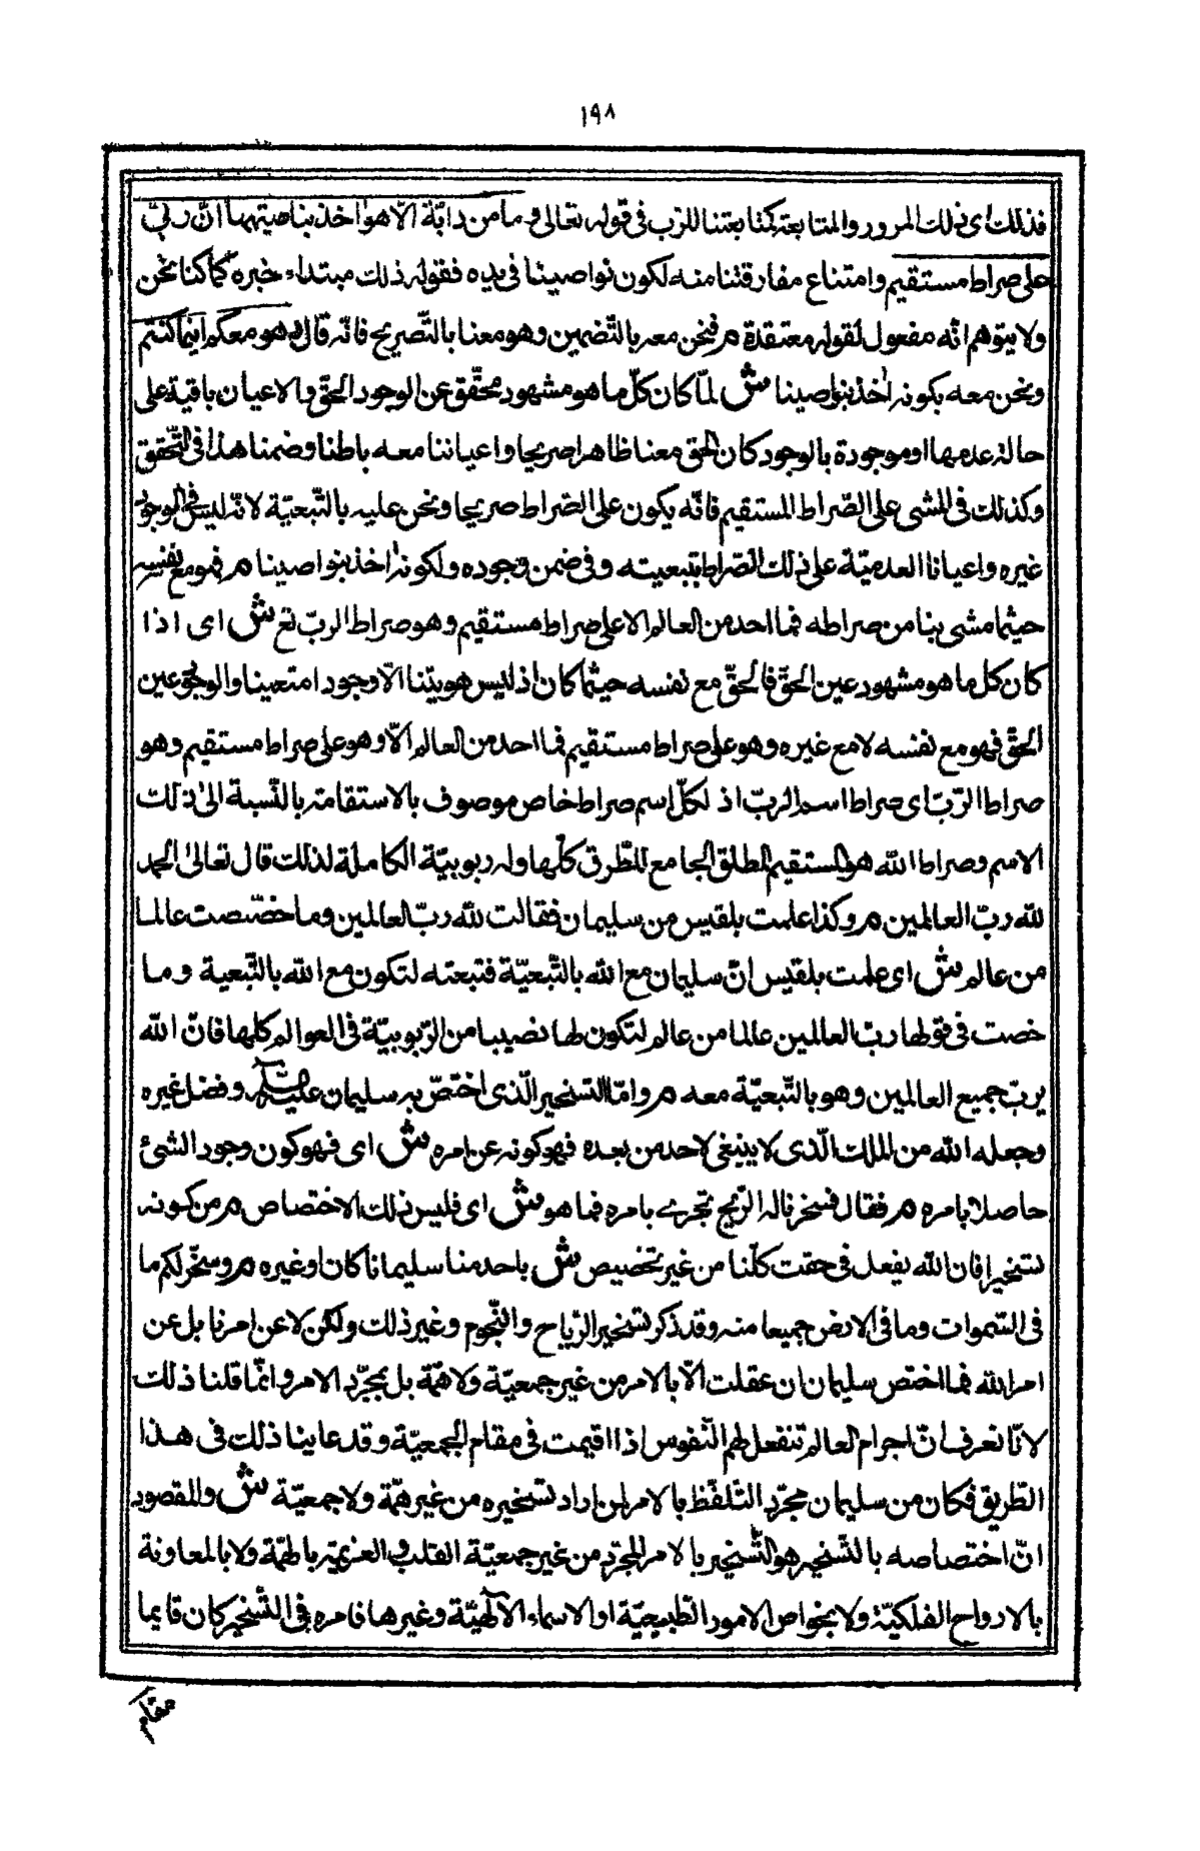 ١٩٨
فذلك اى ذلك المرور والمتابعة كمتابعتنا للرب فى قوله تعالى و ما من دابّة الّا هو اٰخذ بناصيتها انّ ربّى
على صراط مستقيم وامتناع مفارقتنا منه لكون نواصينا فى يده فقوله ذلك مبتداء خبره كما كنا نحن
ولا يتوهم انّه مفعول لقوله معتقدة م فنحن معه بالتّضمين وهو معنا بالتّصريح فانّه قال وهو معكم اينما كنتم
ونحن معه بكونه اٰخذ بنواصينا ش لمّا كان كلّ ما هو مشهود محقّق عن الوجود الحقّ والاعيان باقية على
حالة عدمها او موجودة بالوجود كان الحق معنا ظاهرا صريحا واعياننا معه باطنا وضمنا هذا فى التّحقق
وكذلك فى المشى على الصّراط المستقيم فانّه يكون على الصّراط صريحا ونحن عليه بالتّبعيّة لانّه ليس فى الوجود
غيره واعياننا العدميّة على ذلك الصّراط بتبعيته وفى ضمن وجوده ولكونه اٰخذ بنواصينا م فهو مع نفسه
حيثما مشى بنا من صراطه فما احد من العالم الا على صراط مستقيم وهو صراط الربّ تع ش اى اذا
كان كل ما هو مشهود عين الحقّ فالحقّ مع نفسه حيثما كان اذ ليس هويتنا الّا وجودا متعينا والوجود عين
الحقّ فهو مع نفسه لا مع غيره وهو على صراط مستقيم فما احد من العالم الّا وهو على صراط مستقيم وهو
صراط الرّبّ اى صراط اسم الربّ اذ لكلّ اسم صراط خاص موصوف بالاستقامة بالنّسبة الى ذلك
الاسم وصراط الله هو المستقيم المطلق الجامع للطّرق كلّها وله ربوبيّة الكاملة لذلك قال تعالى الحمد
لله ربّ العالمين م وكذا علمت بلقيس من سليمان فقالت لله ربّ العالمين وما خصّصت عالما
من عالم ش اى علمت بلقيس انّ سليمان مع الله بالتّبعيّة فتبعته لتكون مع الله بالتّبعية وما
خصت فى قولها ربّ العالمين عالما من عالم لتكون لها نصيبا من الرّبوبيّة فى العوالم كلها فانّ الله
يربّ جميع العالمين وهو بالتّبعيّة معه م وامّا التسخير الّذى اختصّ به سليمان عليه السّلم وفضل غيره
وجعله الله من الملك الّذى لا ينبغى لاحد من بعده فهو كونه عن امره ش اى فهو كون وجود الشئ
حاصلا بامره م فقال فسخرنا له الرّيح تجرى بامره فما هو ش اى فليس ذلك الاختصاص م من كونه
تسخيرا فان الله يفعل فى حقت كلّنا من غير تخصيص ش باحد منا سليمانا كان او غيره م وسخّر لكم ما
فى السّموات وما فى الارض جميعا منه وقد ذكر تسخير الرّياح والنّجوم وغير ذلك ولكن لا عن امرنا بل عن
امر الله فما اختص سليمان ان عقلت الّا بالامر من غير جمعيّة ولا همّة بل بمجرّد الامر وانّما قلنا ذلك
لانّا نعرف انّ اجرام العالم تنفعل لهم النّفوس اذا اقيمت فى مقام الجمعيّة وقد عاينا ذلك فى هذا
الطّريق فكان من سليمان مجرّد التّلفّظ بالامر لمن اراد تسخيره من غير همّة ولا جمعيّة ش والمقصود
انّ اختصاصه بالتّسخير هو التّسخير بالامر المجرّد من غير جمعيّة القلب والعزيمة بالهمّة ولا بالمعاونة
بالارواح الفلكيّة ولا بخواص الامور الطّبيعيّة او الاسماء الالٰهيّة وغيرها فامره فى التّسخير كان قايما
مقام